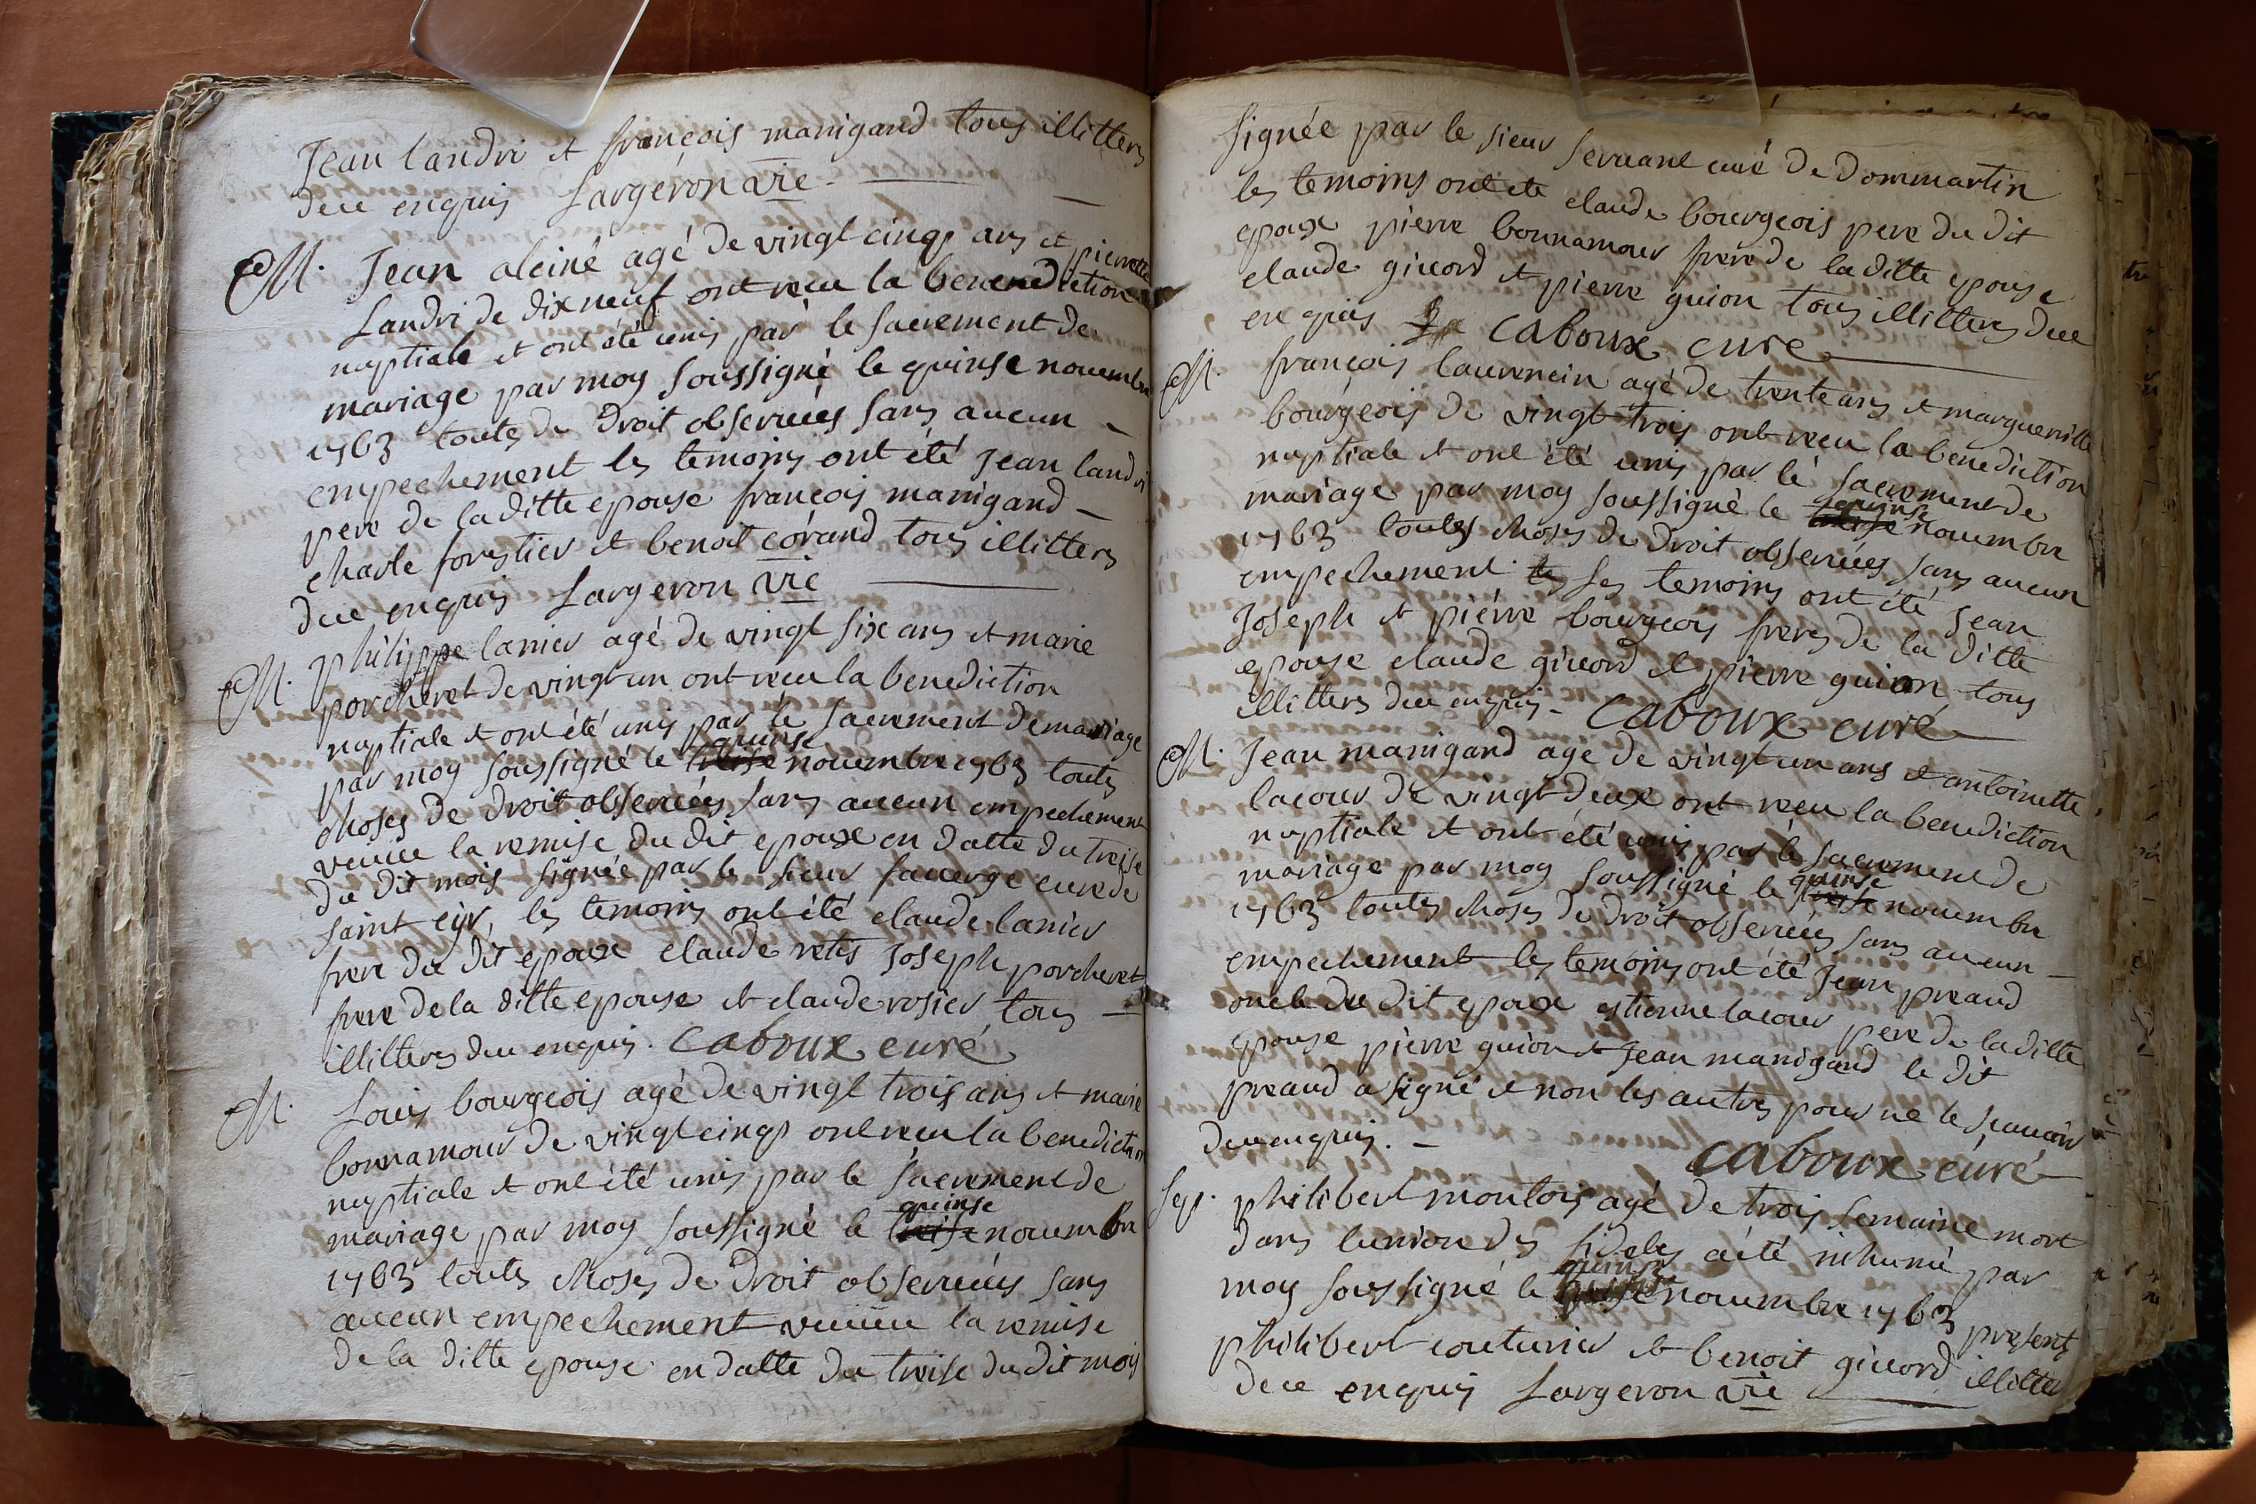 Jean landri et françois manigand tous illitters
due enquis Largeron vie
M. Jean aleiné agé de vingt cinq ans et pierrette
Landri de dix neuf ont reçu la benendiction
nuptiale et ont été unis par le sacrement de
mariage par moy soussigné le quinse nouembre
1763 toutes de droit obseruées sans aucun
empechement les temoins ont été jean landri
pere de la ditte epouse françois manigand
charle forestier et benoit corand tous illitters
due enquis Largeron vie
M. philippe lanier agé de vingt six ans et marie
porcheret de vingt un ont reçu la benediction
nuptiale et ont été unis par le sacrement de mariage
quinse
par moy soussigné le treise nouembre 1763 toutes
choses de droit obseruées sans aucun empechement
veüüe la remise du dit epoux en datte du treise
du dit mois signée par le sieur fauerge curé de
saint cyr, les temoins ont été claude lanier
frere du dit epoux claude retis joseph porcheret
frere de la ditte epouse et claude rosier tous
illitters due enquis. Caboux curé
M. Louis bourgeois agé de vingt trois ans et marie
bonnamour de vingt cinq ont reçu la benediction
nuptiale et ont été unis par le sacrement de
quinse
mariage par moy soussigné le treise nouembre
1763 toutes choses de droit obseruées sans
aucun empechement veüüe la remise
de la ditte epouse en datte du treise du dit mois
signée par le sieur seruant curé de dommartin
les temoins ont ete claude bourgeois pere du dit
epoux pierre bonnamour frere de la ditte epouse
claude giuord et pierre guion tous illitters due
enquis Caboux cure
M. françois laurencin agé de trente ans et margueritte
bourgeois de vingt trois ont reçu la benediction
nuptiale et ont été unis par le sacrement de
quinse
mariage par moy soussigné le treise nouembre
1763 toutes choses de droit obseruées sans aucun
empechement. les temoins ont été jean
joseph et pierre bourgeois freres de la ditte
epouse claude giuord et pierre guion tous
illitters due enquis - Caboux curé
M. Jean manigand agé de vingt un ans et antoinette
lacour de vingt deux ont reçu la benediction
nuptiale et ont été unis par le sacrement de
quinse
mariage par moy soussigné le treise nouembre
1763 toutes choses de droit obseruées sans aucun
empechement les temoins ont été jean preaud
oncle du dit epoux estienne lacour pere de la ditte
epouse pierre guion et jean manigand le dit
preaud a signé et non les autres pour ne le scauoir
due enquis.
Caboux curé
Sep. philibert montois agé de trois semaine mort
dans lunion des fidels a été inhumé par
quinse
moy soussigné le treise nouembre 1763 presents
philibert couturier et benoit giuord illitters
due enquis Largeron vie